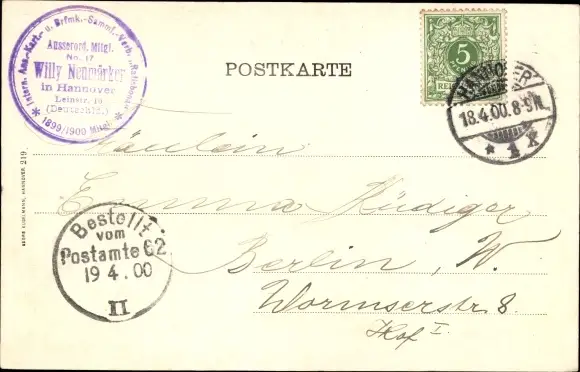 Intern. Ans.-Kart.- u. Brfmk.-Samml.-Verb.
Ausserord. Mitgl.
No. 17
Willy Neumärker
in Hannover
Leinstr. 10
(Deutschld.)
* 1899/1900 Mitgl. *
POSTKARTE
5
HANNOVER
18.4.00. 8-9N.
* 1 X
Fräulein
Emma Rüdiger
Berlin, W.
Wormserstr. 8.
Hof I.
Bestellt
vom
Postamte 62
19 4. 00
II
HANNOVER 219.